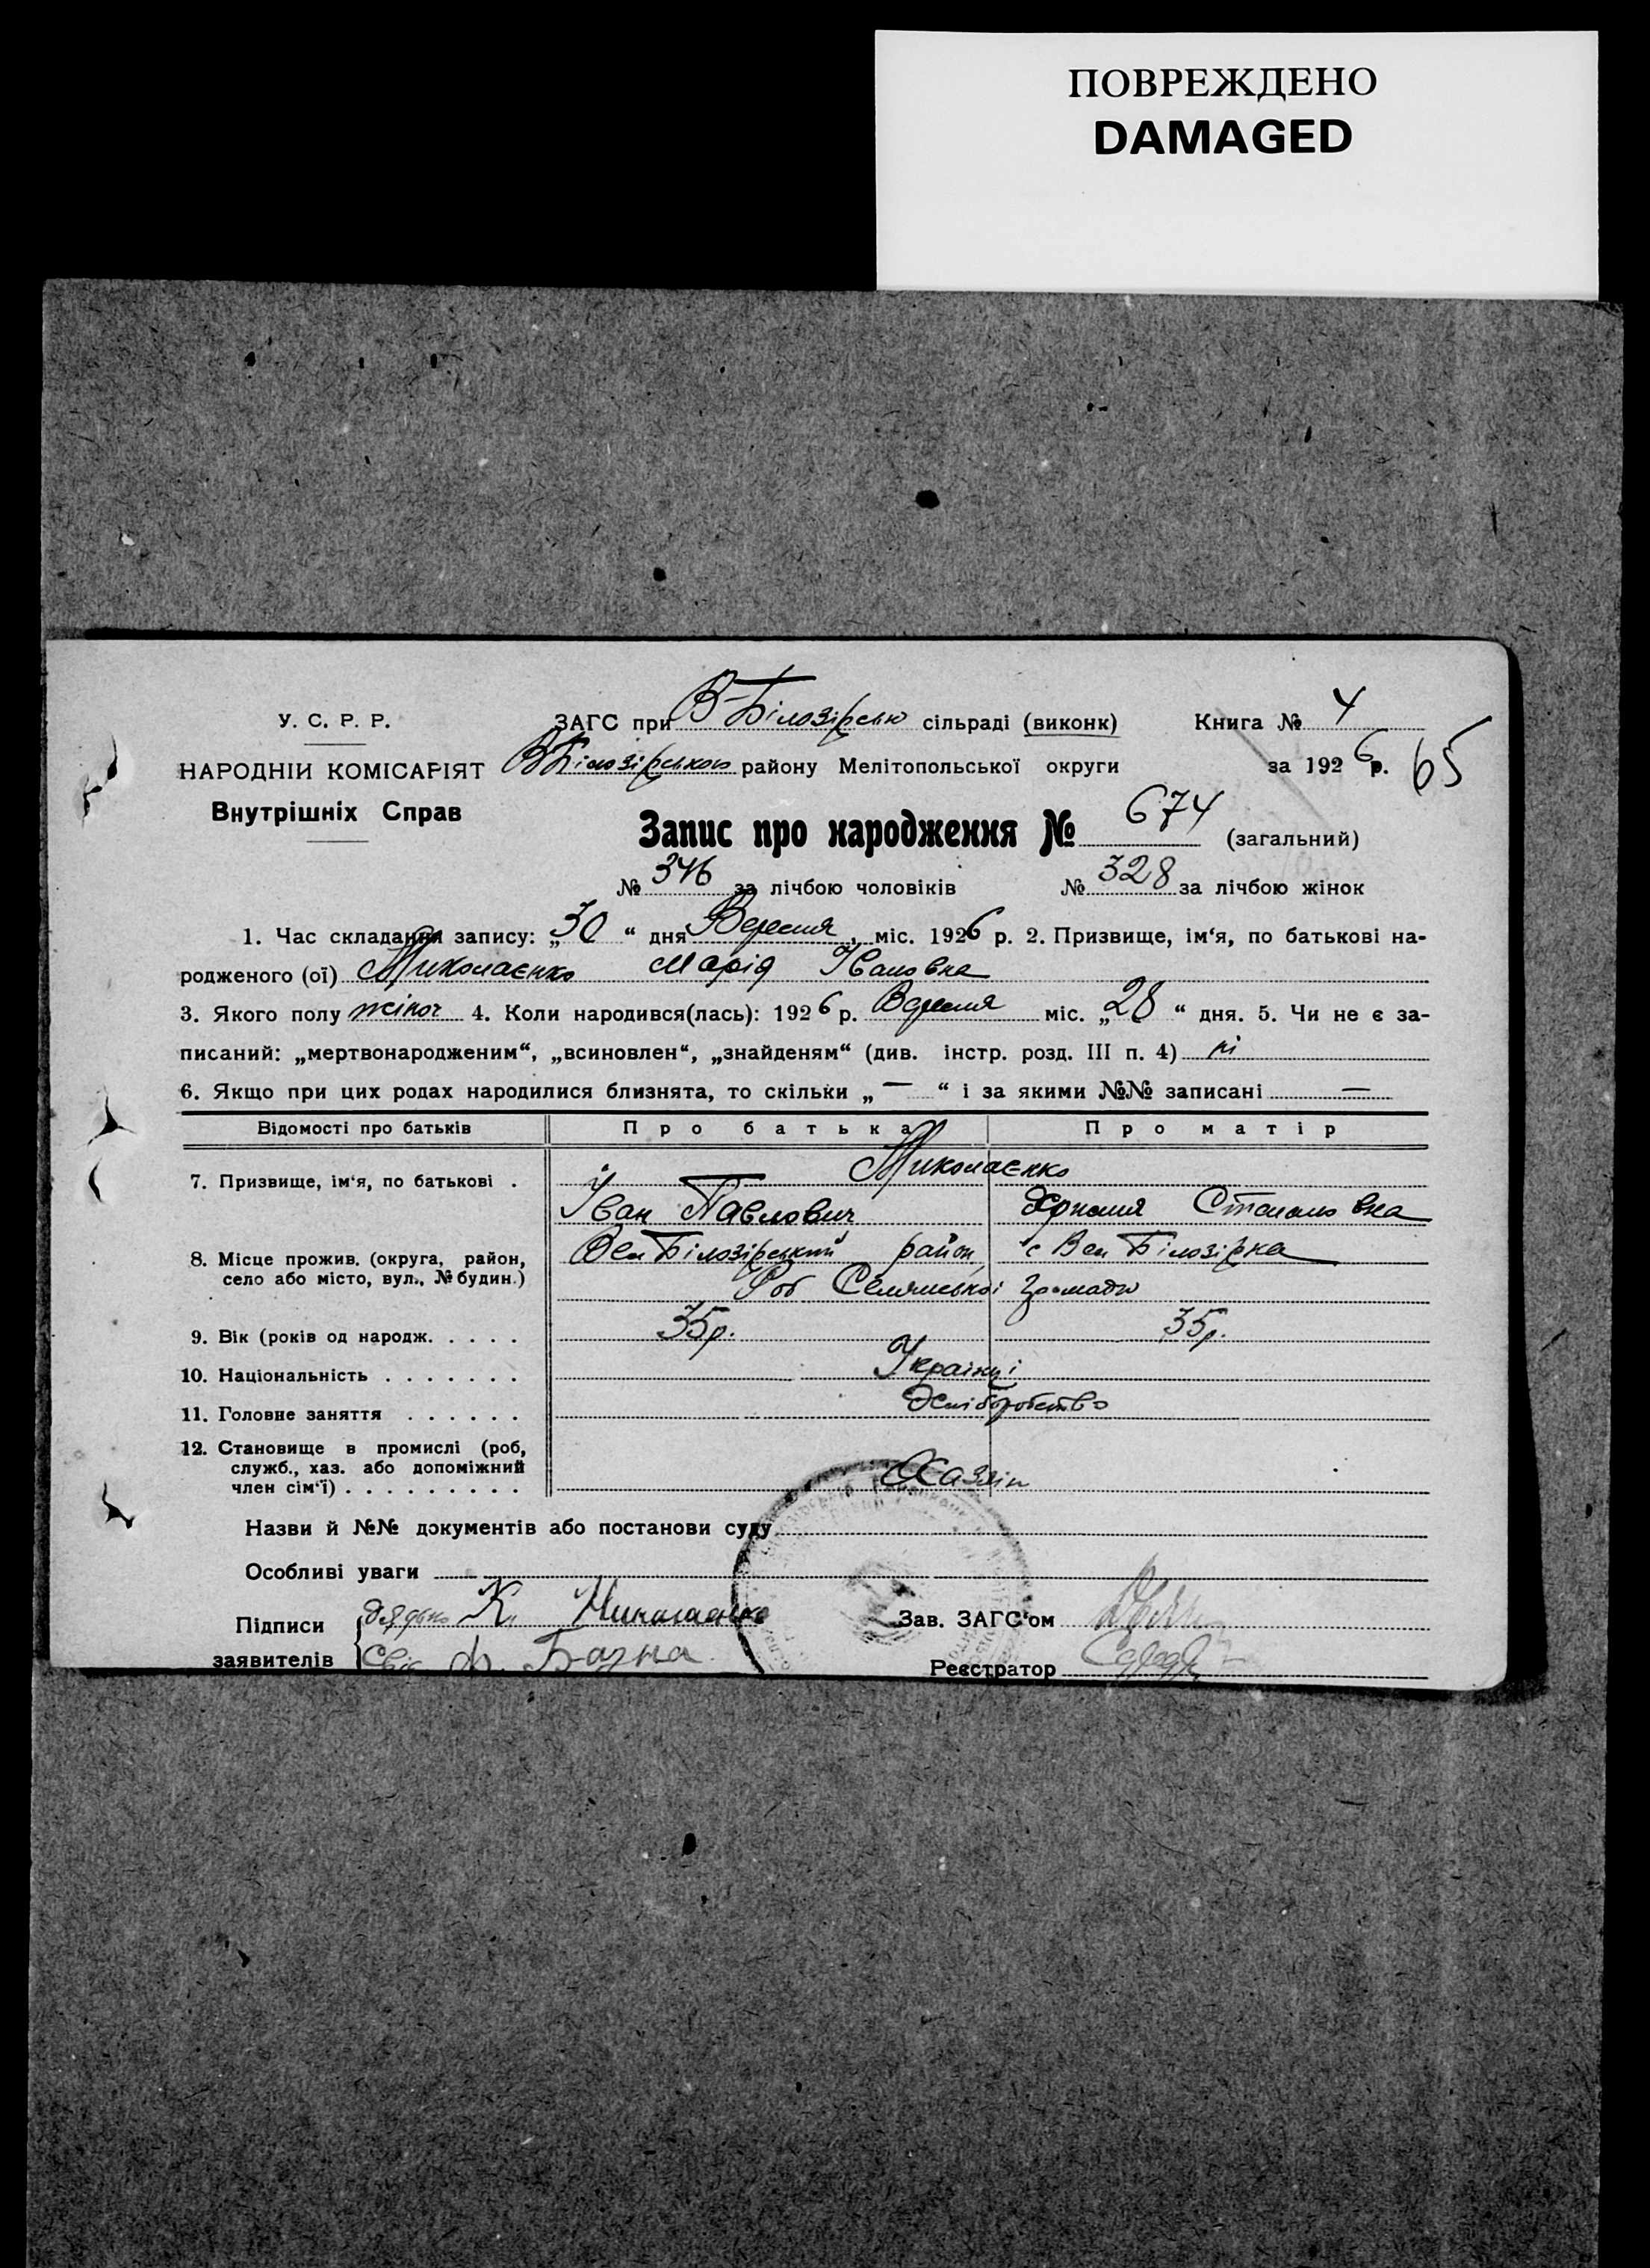 ПОВРЕЖДЕНО
DAMAGED
У. С. Р. Р.
ЗАГС при В-Білозірськ сільраді (виконк)
Книга № 4
НАРОДНІЙ КОМІСАРІЯТ
В Білозірського району Мелітопольської округи
за 1926 р. 65
Внутрішніх Справ
Запис про народження № 674 (загальний)
№ 346 за лічбою чоловіків № 328 за лічбою жінок
1. Час складання запису: „30“ дня Вересня, міс. 1926 р. 2. Призвище, ім‘я, по батькові на-
родженого (ої) Миколаєнко Марія Івановна
3. Якого полу жіноч 4. Коли народився(лась): 1926 р. Вересня міс. „28“ дня. 5. Чи не є за-
писаний: „мертвонародженим“, „всиновлен“, „знайденям“ (див. інстр. розд. III п. 4) ні
6. Якщо при цих родах народилися близнята, то скільки „—“ і за якими №№ записані —
Відомості про батьків Про батька Про матір
7. Призвище, ім‘я, по батькові . Миколаєнко
Іван Павлович Степановна
8. Місце прожив. (округа, район, Вел Білозірський район, с Вел Білозірка
село або місто, вул., № будин.) Селянської громади
9. Вік (років од народж. . . . . 35р. 35р.
10. Національність . . . . . . . Українці
11. Головне заняття . . . . . . Хліборобство
12. Становище в промислі (роб,
служб., хаз. або допоміжний Хазяін
член сім‘ї) . . . . . . . . .
Назви й №№ документів або постанови суду
Особливі уваги
Підписи дядько К. Миколаенко Зав. ЗАГС‘ом
заявителів Свід Реєстратор